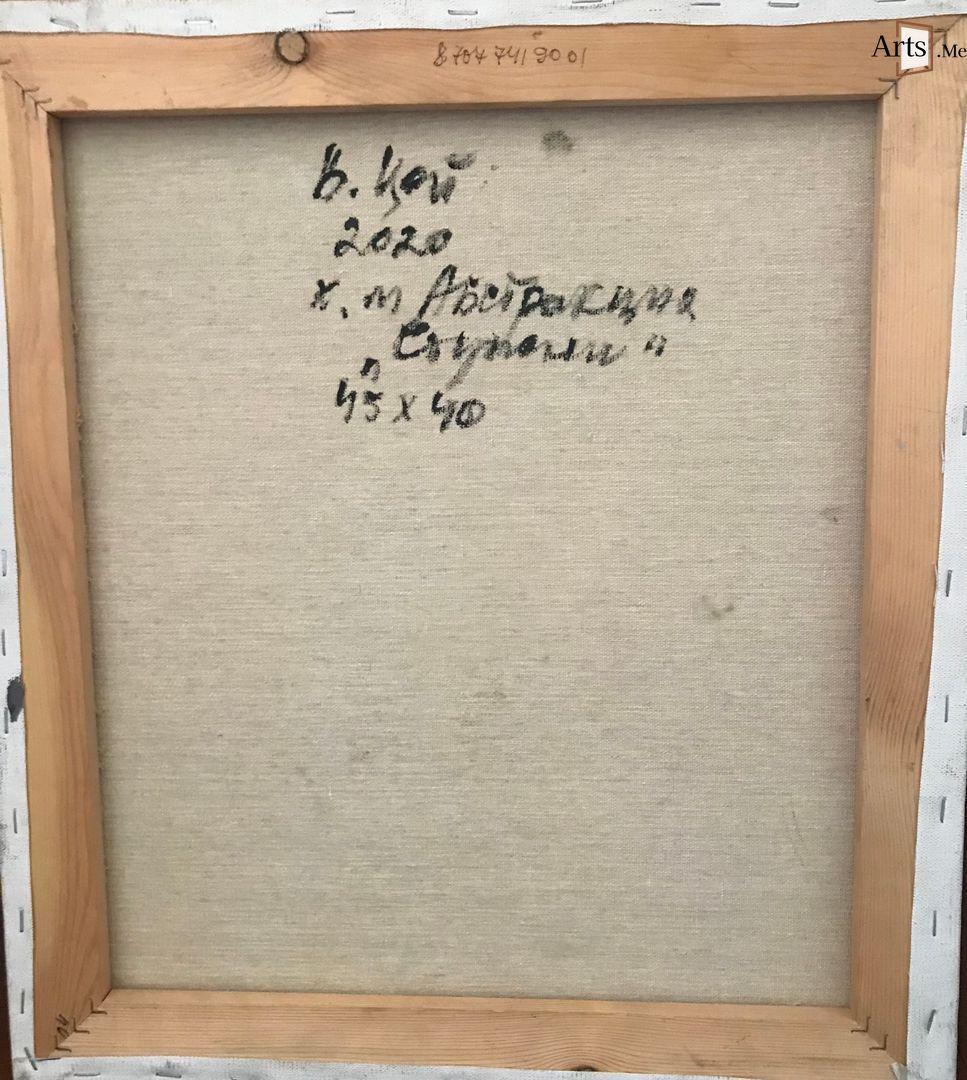 8707 7419001
Arts.Me
В. Цой
2020
х. м Абстракция
„Ступени"
45 х 40